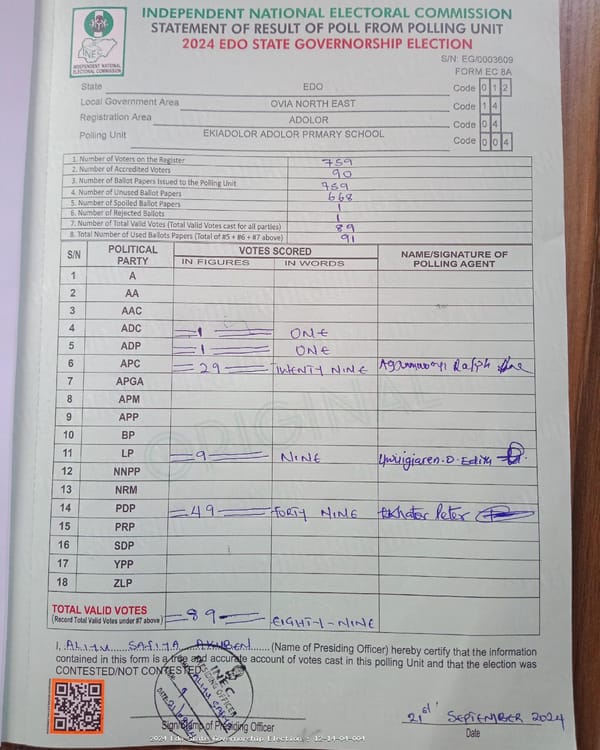 INDEPENDENT NATIONAL ELECTORAL COMMISSION
STATEMENT OF RESULT OF POLL FROM POLLING UNIT
2024 EDO STATE GOVERNORSHIP ELECTION
INEC
INDEPENDENT NATIONAL ELECTORAL COMMISSION
S/N: EG/0003609
FORM EC 8A
State EDO Code 0 1 2
Local Government Area OVIA NORTH EAST Code 1 4
Registration Area ADOLOR Code 0 4
Polling Unit EKIADOLOR ADOLOR PRMARY SCHOOL Code 0 0 4
1. Number of Voters on the Register 759
2. Number of Accredited Voters 90
3. Number of Ballot Papers Issued to the Polling Unit 759
4. Number of Unused Ballot Papers 668
5. Number of Spoiled Ballot Papers 1
6. Number of Rejected Ballots 1
7. Number of Total Valid Votes (Total Valid Votes cast for all parties) 89
8. Total Number of Used Ballots Papers (Total of #5 + #6 + #7 above) 91
S/N POLITICAL PARTY VOTES SCORED NAME/SIGNATURE OF POLLING AGENT
IN FIGURES IN WORDS
1 A
2 AA
3 AAC
4 ADC 1 ONE
5 ADP 1 ONE
6 APC 29 TWENTY NINE Ralph
7 APGA
8 APM
9 APP
10 BP
11 LP 9 NINE D. Edith
12 NNPP
13 NRM
14 PDP 49 FORTY NINE Ekhator Peter
15 PRP
16 SDP
17 YPP
18 ZLP
ORIGINAL
TOTAL VALID VOTES 89 EIGHTY-NINE
(Record Total Valid Votes under #7 above)
I, ALIYU SAFIYA (Name of Presiding Officer) hereby certify that the information
contained in this form is a true and accurate account of votes cast in this polling Unit and that the election was
CONTESTED/NOT CONTESTED.
INEC
PRESIDING OFFICER
Sign/Stamp of Presiding Officer
21st SEPTEMBER 2024
Date
2024 Edo State Governorship Election : 12-14-04-004